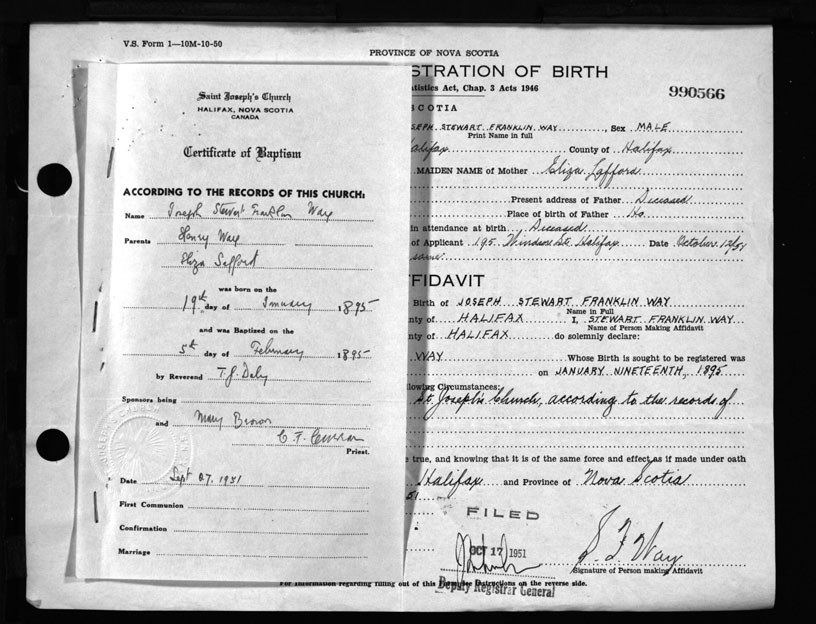 V.S. Form 1—10M-10-50
PROVINCE OF NOVA SCOTIA
STRATION OF BIRTH
atistics Act, Chap. 3 Acts 1946
990566
SCOTIA
SEPH STEWART FRANKLIN WAY, Sex MALE
Print Name in full
alifax County of Halifax
MAIDEN NAME of Mother Eliza Lafford
Present address of Father Deceased
Place of birth of Father
in attendance at birth Deceased
of Applicant 195 Windsor St. Halifax Date October 12/51
same
FIDAVIT
Birth of JOSEPH STEWART FRANKLIN WAY
Name in Full
nty of HALIFAX I, STEWART FRANKLIN WAY
Name of Person Making Affidavit
nty of HALIFAX do solemnly declare:
WAY Whose Birth is sought to be registered was
on JANUARY NINETEENTH, 1895
llowing Circumstances:
St. Joseph's Church, according to the records of
e true, and knowing that it is of the same force and effect as if made under oath
Halifax and Province of Nova Scotia
51
FILED
OCT 17 1951
S. F. Way
Signature of Person making Affidavit
For information regarding filling out of this Form see Instructions on the reverse side.
Deputy Registrar General
Saint Joseph's Church
HALIFAX, NOVA SCOTIA
CANADA
Certificate of Baptism
ACCORDING TO THE RECORDS OF THIS CHURCH:
Name Joseph Stewart Franklin Way
Parents Henry Way
Eliza Safford
was born on the
19th day of January 1895
and was Baptized on the
5th day of February 1895
by Reverend T. J. Daly
Sponsors being
and Mary Brown
C. F. Curran
Priest.
Date Sept 27, 1951
First Communion
Confirmation
Marriage